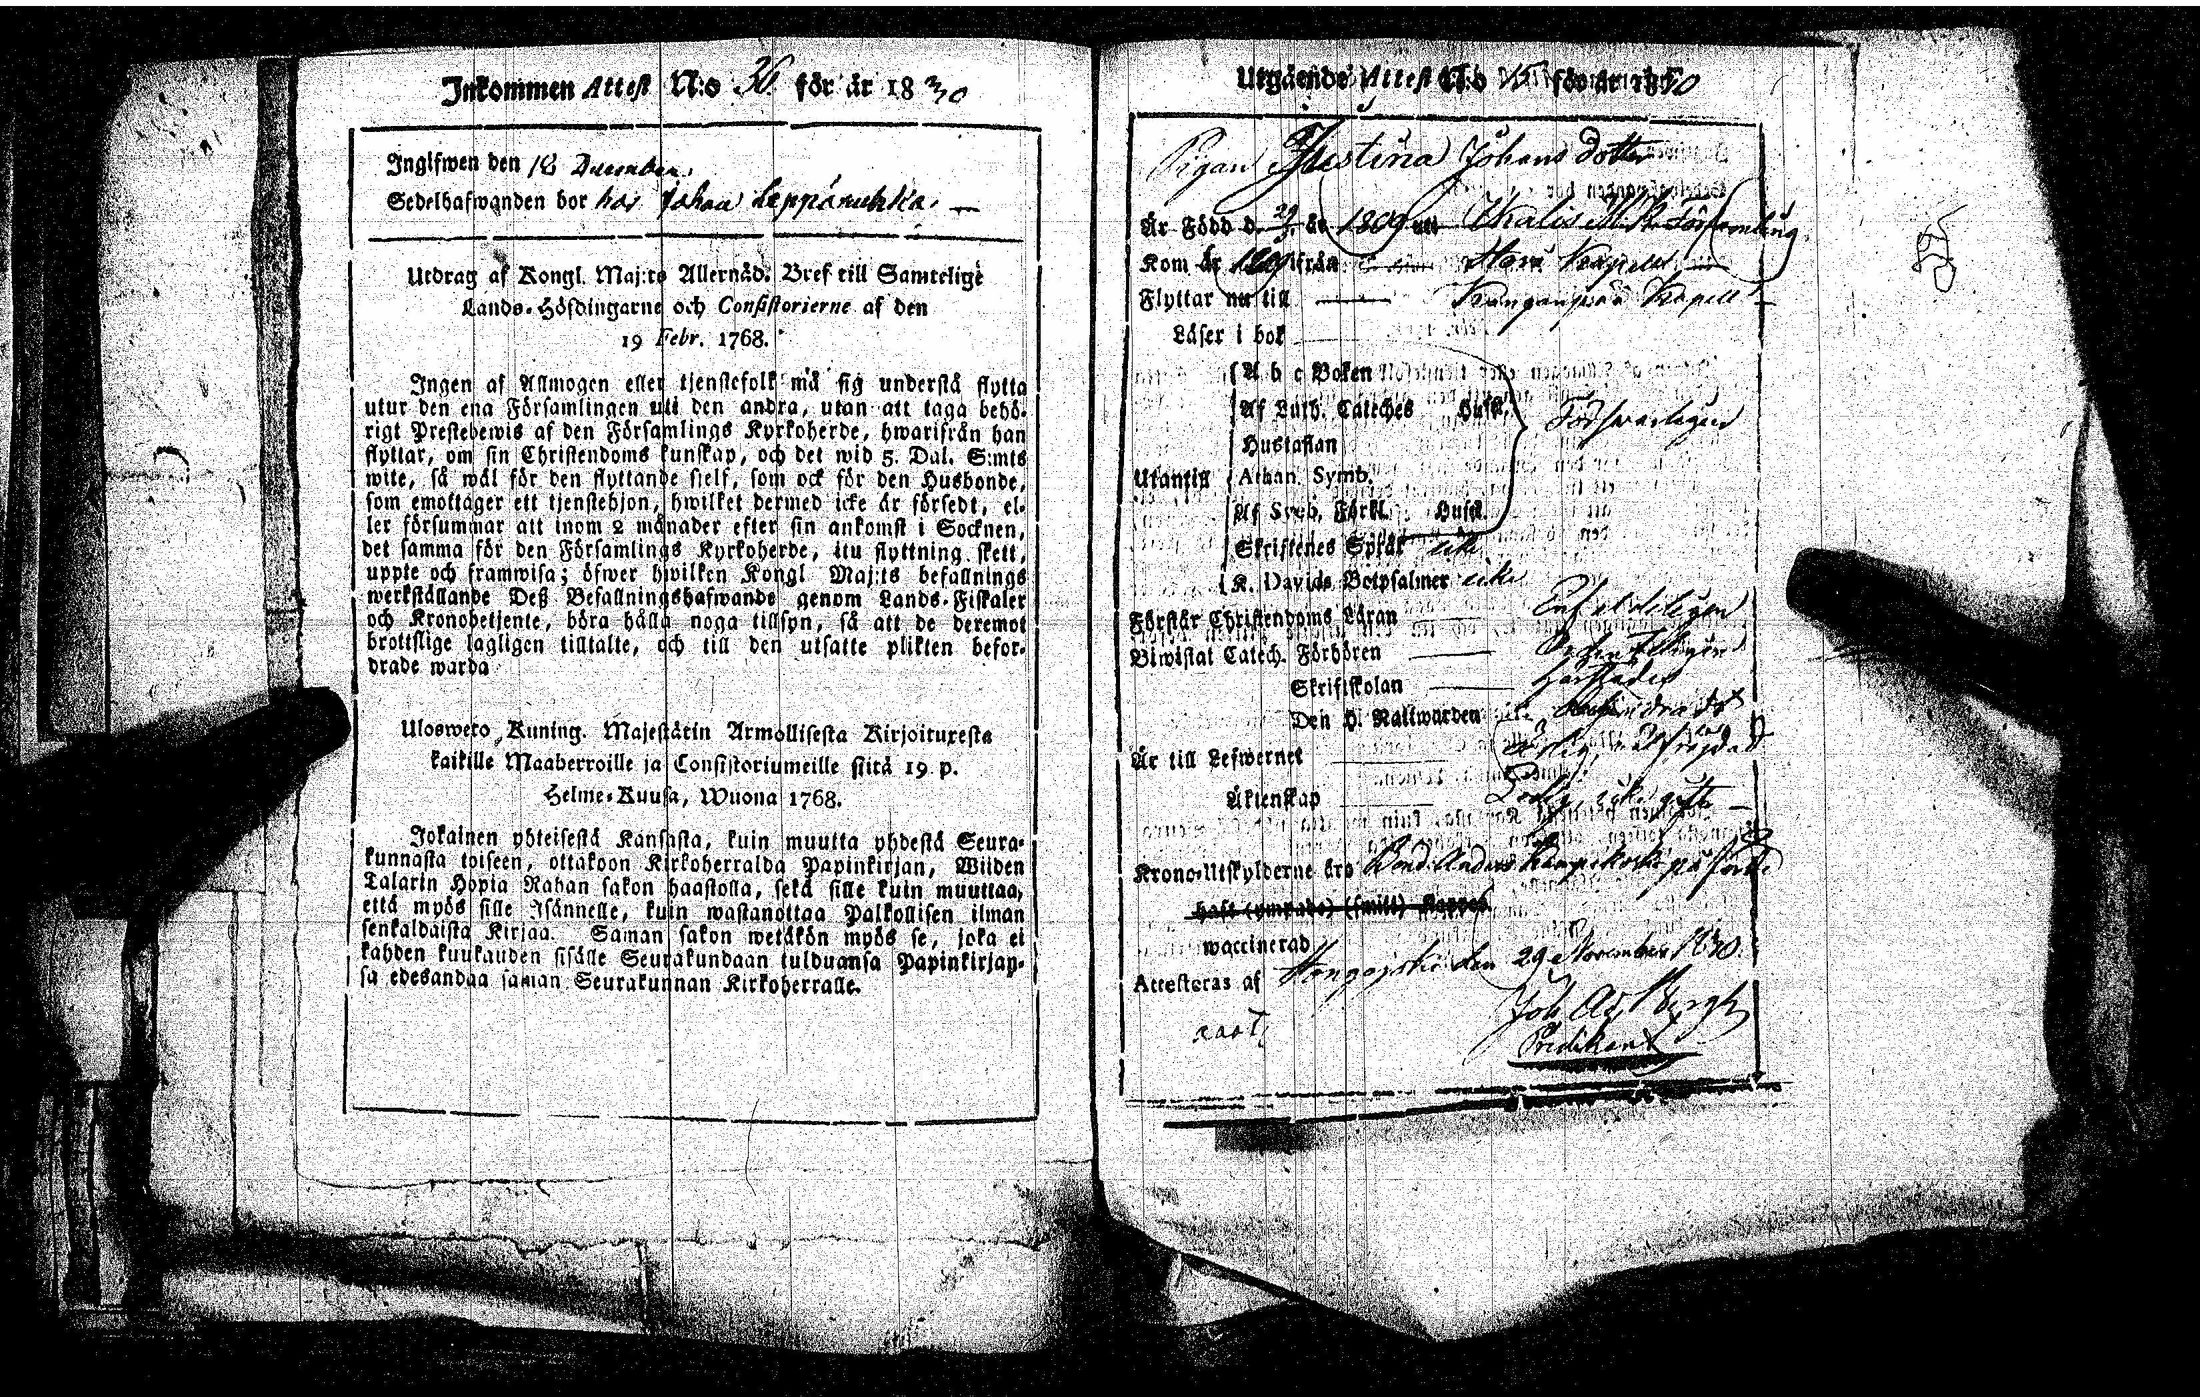 Inkommen Attest N:o 36 för år 1830
Ingifwen den 18 December.
Sedelhafwanden bor hos Johan Leppäruhka. —
Utdrag af Kongl. Maj:ts Allernåd. Bref till Samtelige
Lands-Höfdingarne och Consistorierne af den
19 Febr. 1768.
Ingen af Allmogen eller tjenstefolk må sig understå flytta
utur den ena Församlingen uti den andra, utan att taga behö-
rigt Prestebewis af den Församlings Kyrkoherde, hwarifrån han
flyttar, om sin Christendoms kunskap, och det wid 5. Dal. S:mts
wite, så wäl för den flyttande sielf, som ock för den Husbonde,
som emottager ett tjenstehjon, hwilket dermed icke är försedt, el-
ler försummar att inom 2 månader efter sin ankomst i Socknen,
det samma för den Församlings Kyrkoherde, itu flyttning skett,
uppte och framwisa; öfwer hwilken Kongl Maj:ts befallnings
werkställande Deß Befallningshafwande genom Lands-Fiskaler
och Kronobetjente, böra hålla noga tillsyn, så att de deremot
brottslige lagligen tilltalte, och till den utsatte plikten befor-
drade warda
Uloswero Kuning. Majestätin Armollisesta Kirjoituxesta
kaikille Maaherroille ja Consistoriumeille siitä 19 p.
Helme-Kuusa, Wuona 1768.
Jokainen yhteisestä Kansasta, kuin muutta yhdestä Seura-
kunnasta toiseen, ottakoon Kirkoherralda Papinkirjan, Wiiden
Talarin Hopia Rahan sakon haastolla, sekä sille kuin muuttaa,
että myös sille Isännelle, kuin wastanottaa Palkollisen ilman
senkaldaista Kirjaa. Saman sakon wetäkön myös se, joka ei
kahden kuukauden sisälle Seurakundaan tulduansa Papinkirjap-
sa edesandaa saman Seurakunnan Kirkoherralle.
Utgående Attest N:o för år 1830
Pigan Justina Johans dotter
Är Född d. 29 år 1809 uti Ikalis M. K. Församling
Kom år ifrån Kapell
Flyttar nu till — Kanganpää Kapell —
Läser i bok
A b c Boken
Af Luth. Cateches Husfl.
Hustaflan
Utantill Athan. Symb.
Af Sveb. Förkl. Husfl.
Försvarligen
Skriftenes Språk icke
K. Davids Botpsalmer icke
Förstår Christendoms Läran Enfaldeligen
Biwistat Catech. Förhören — Ordentligen
Skriftskolan — härstädes
Den H. Nattwarden
Är till Lefwernet ärlig, wälfrejdad
Äktenskap Ledig, icke gift —
Krono-Utskylderne äro Bond. Anders
haft (ympade) (smitt) koppor
waccinerad
Attesteras af den 29 November 1830.
Joh Ad Bergh
Predikant